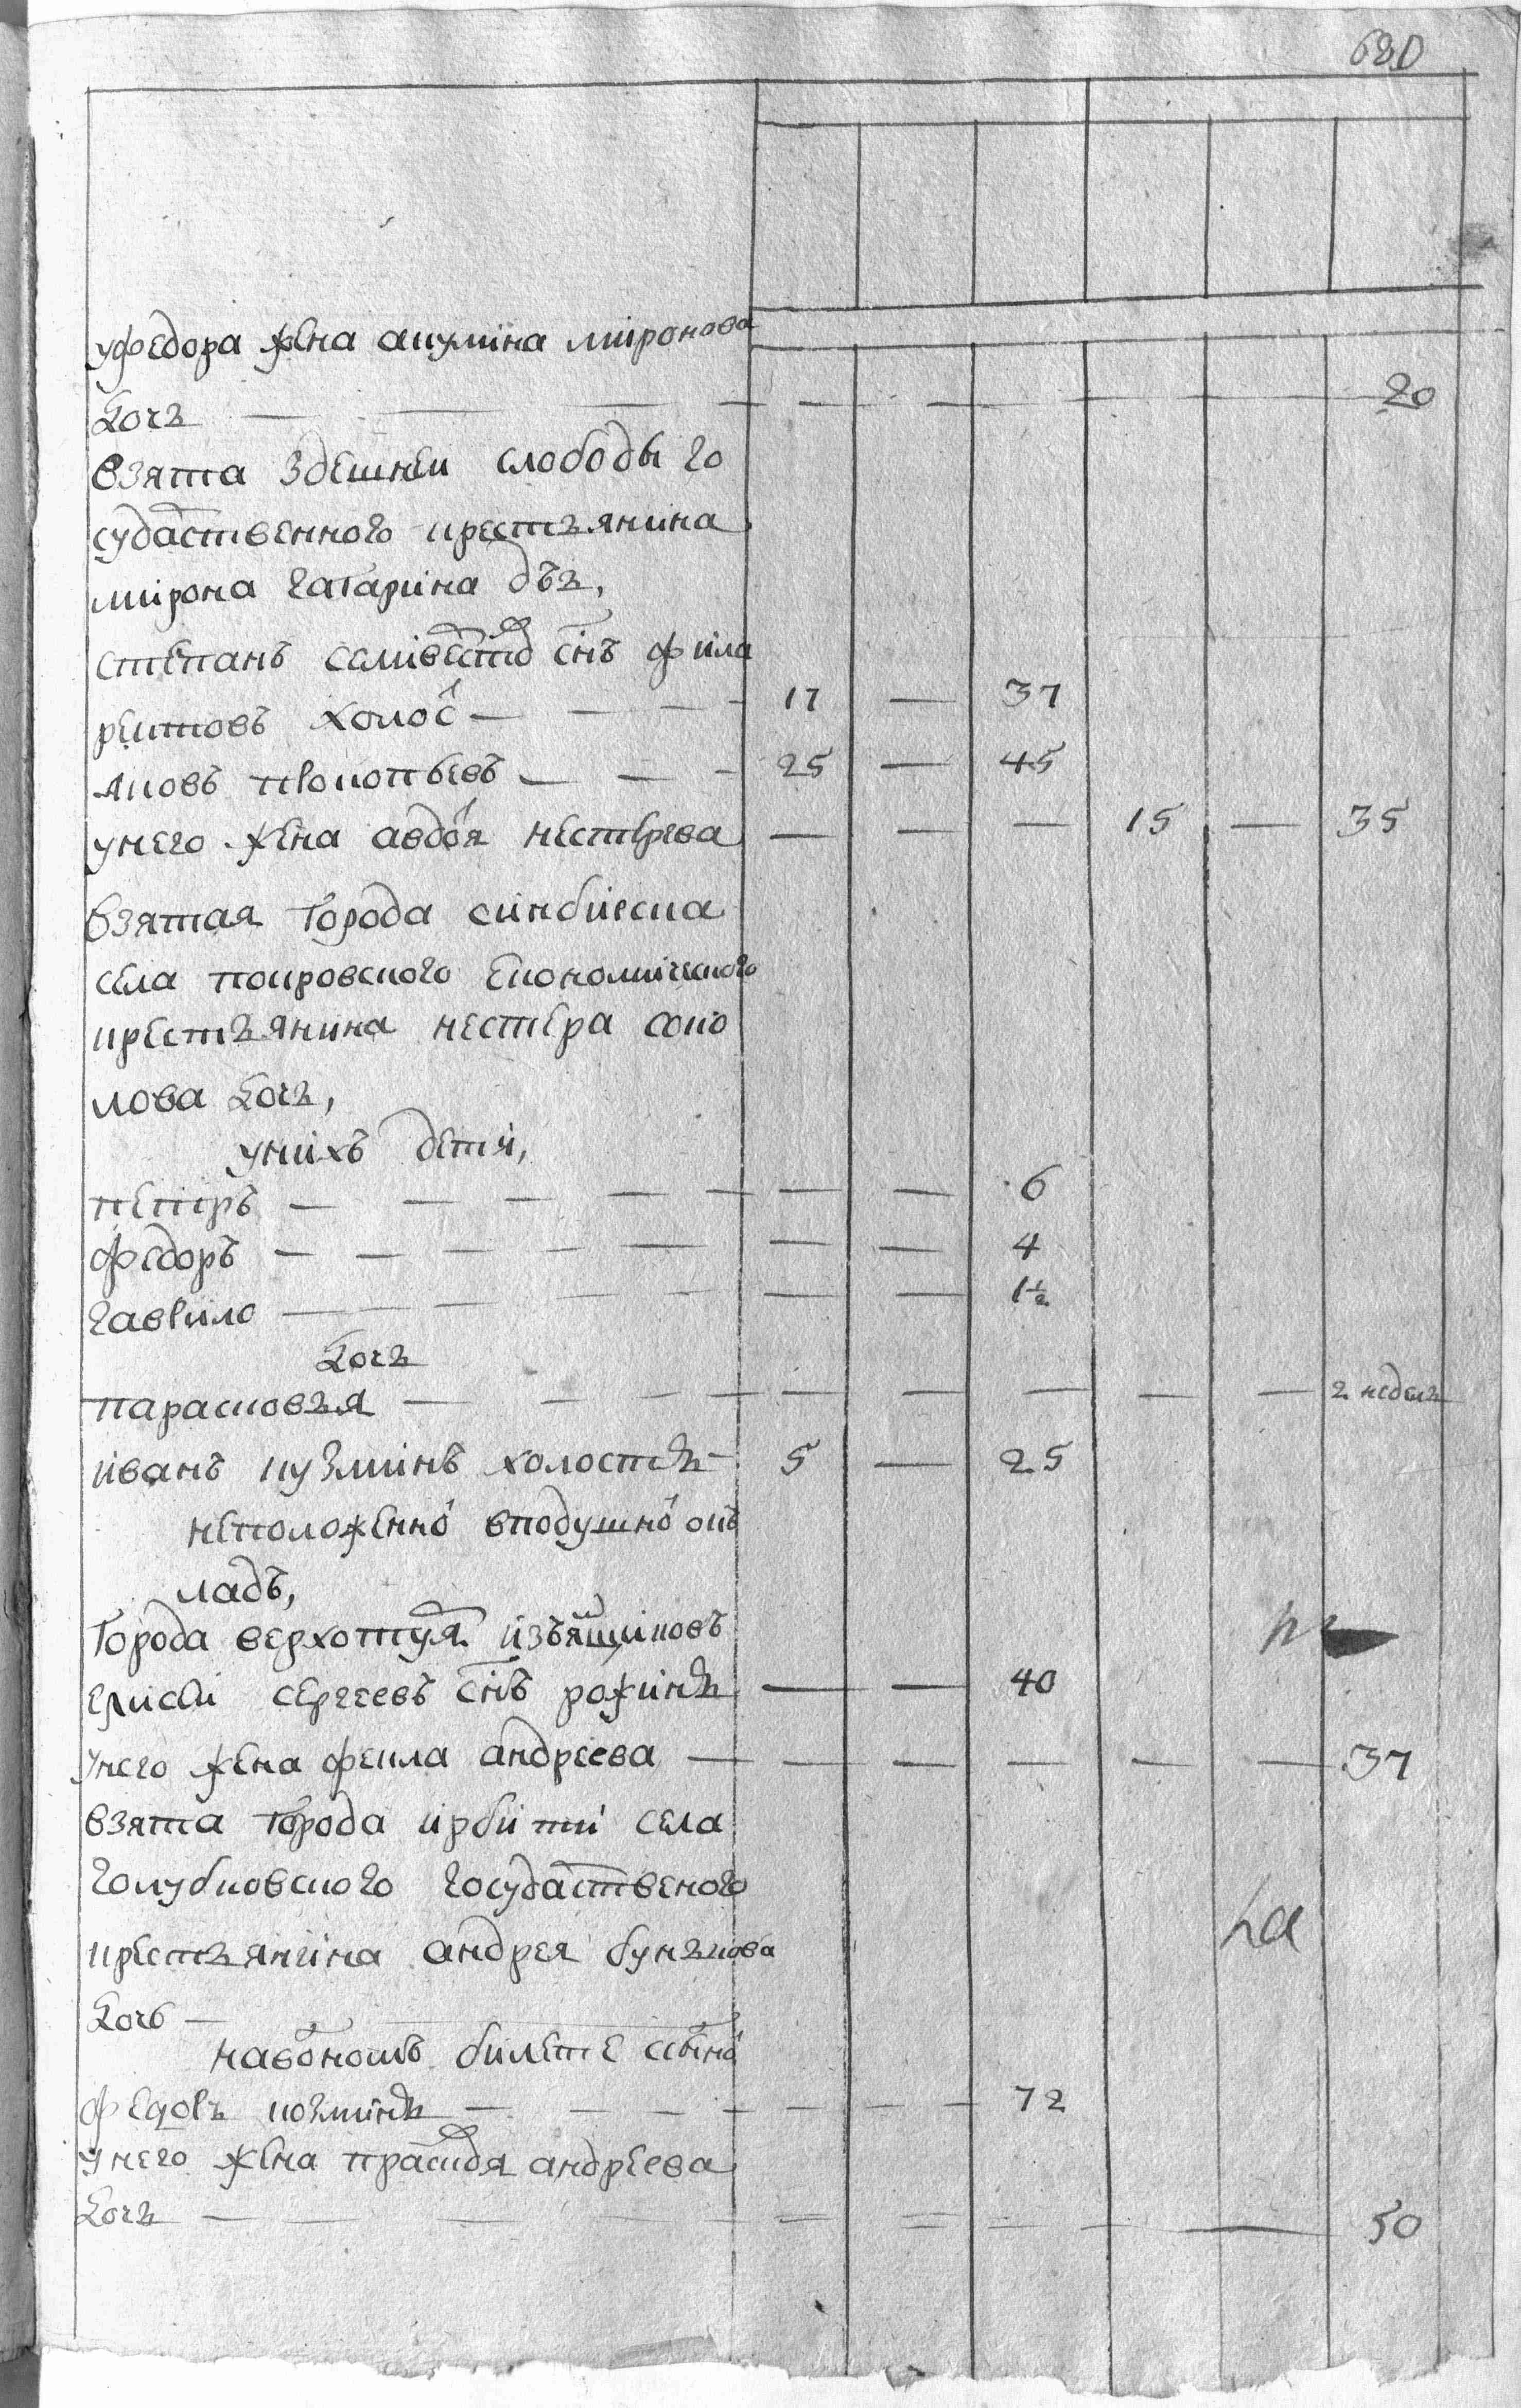 680
уфедора жена акулина миронова
дочь — — — — — — — — 20
взята здешней слободы го
сударственного крестьянина
мирона гагарина дчь,
степанъ селивестровъ снъ фила
ретовъ холос — — 17 — 37
яковъ прокопьевъ — — 25 — 45
унего жена авдотя нестерева — — — 15 — 35
взятая города синбирска
села покровского економического
крестьянина нестера соко
лова дочь,
унихъ дети,
петръ — — — — — — — 6
федоръ — — — — — — — 4
гаврило — — — — — — 1½
дочь
парасковья — — — — — — — — 2 недель
иванъ кузминъ холостъ — 5 — 25
неположенной вподушной ок
ладъ,
города верхотурья изъящиковъ
елисей сергеевъ снъ рожинъ — — 40
унего жена фекла андреева — — — — — — 37
взята города ирбити села
голубковского государственого
крестьянина андрея бунькова
дочь —
билете
федоръ козминъ — — — — — — 72
унего жена андреева
дочь — — — — — — — — 50